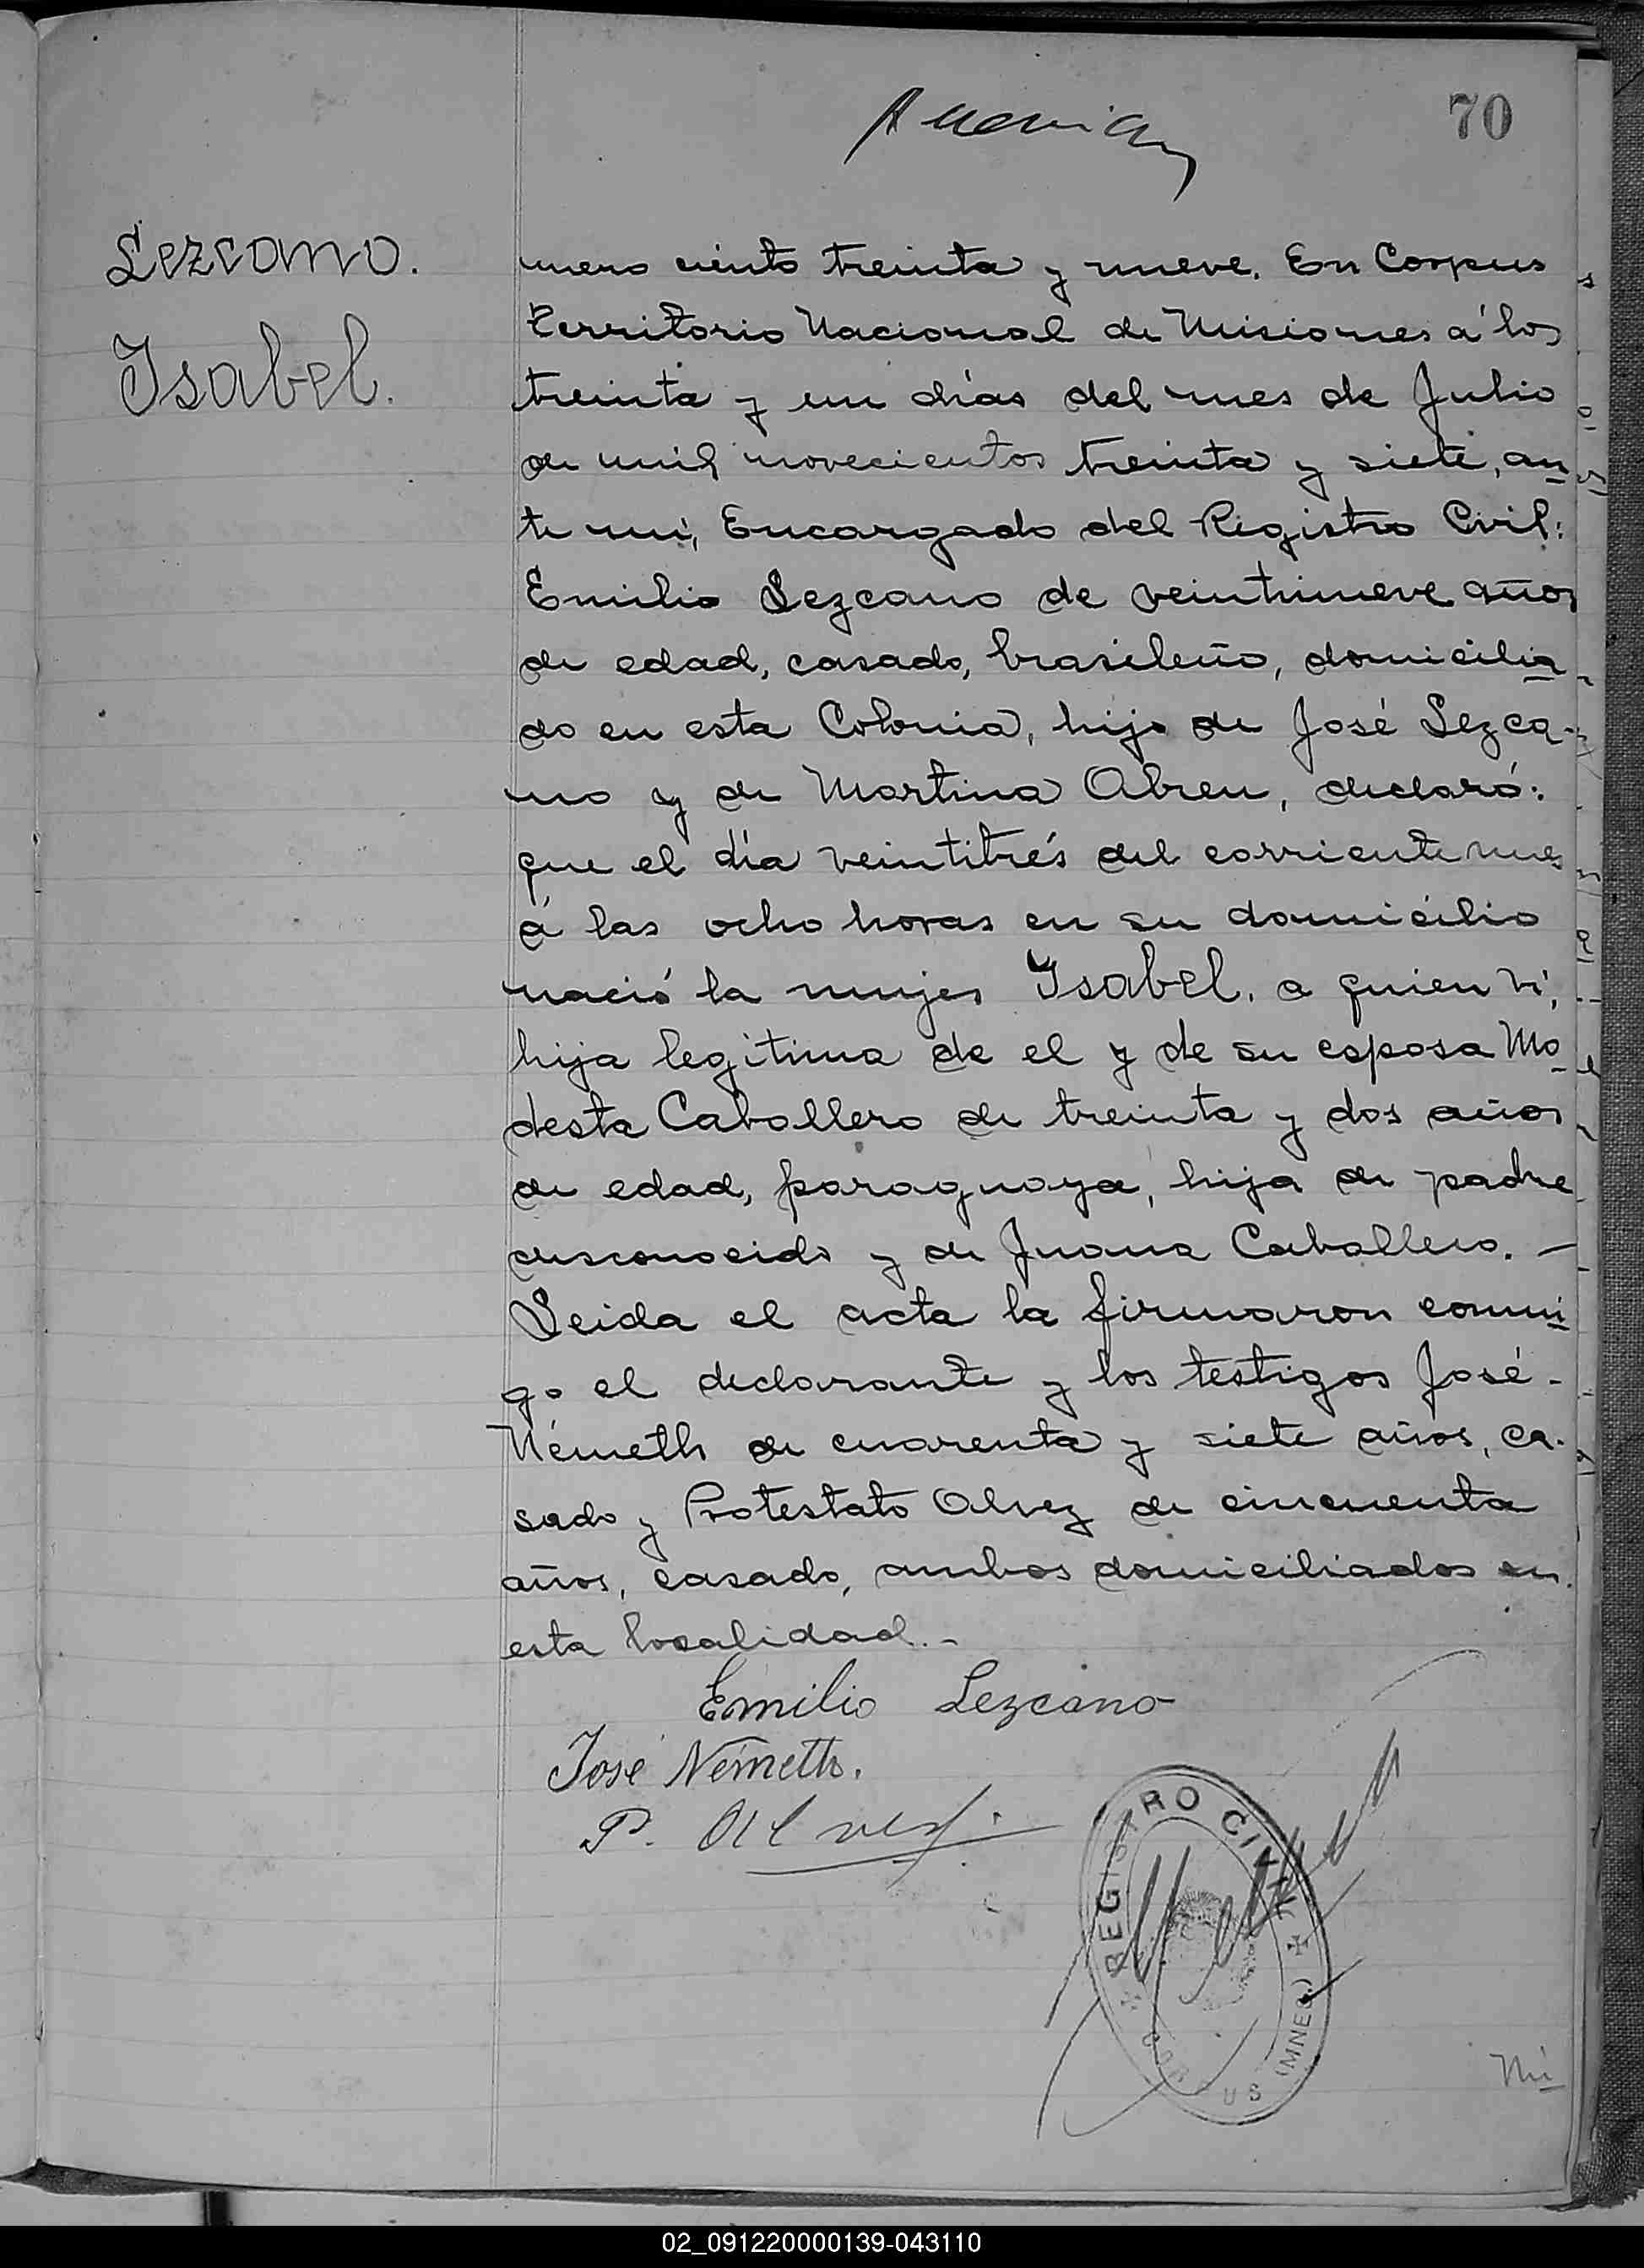 70
Lezcano.
Isabel.
mero ciento treinta y nueve. En Corpus
territorio Nacional de Misiones á los
treinta y un días del mes de Julio
de mil novecientos treinta y siete, an
te mí, Encargado del Registro Civil:
Emilio Lezcano de veintinueve años
de edad, casado, brasileño, domicilia
do en esta Colonia, hijo de José Lezca-
no y de Martina Abreu, declaró:
que el día veintitrés del corriente mes
á las ocho horas en su domicilio
nació la mujer Isabel. a quien ví,
hija legítima de el y de su esposa Mo
desta Caballero de treinta y dos años
de edad, paraguaya, hija de padre
desconocido y de Juana Caballero. —
Leida el acta la firmaron conmi
go el declarante y los testigos José-
Németh de cuarenta y siete años, ca-
sado y Protestato Alvez de cincuenta
años, casado, ambos domiciliados en
esta localidad.-
Emilio Lezcano
José Németh.
P. Alvez.
REGISTRO CIVIL
CORPUS (MNES.)
02_091220000139-043110